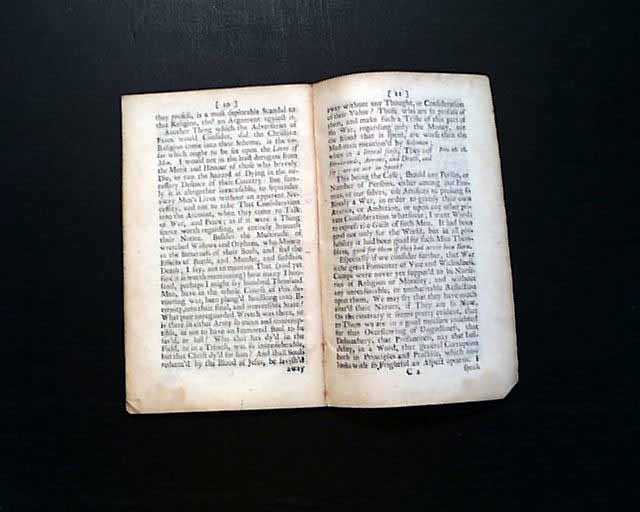 [ 10 ]
they profess, is a most deplorable Scandal to
that Religion, and an Argument against it.
Another Thing which the Adversaries of
Peace would Consider, did the Christian
Religion come into their Schemes, is the va-
lue which ought to be set upon the Lives of
Men. I would not in the least derogate from
the Merit and Honour of those who bravely
Die, or run the hazard of Dying in the ne-
cessary Defence of their Country. But sure-
ly it is altogether inexcusable, to squander
away Men's Lives without an apparent Ne-
cessity, and not to take This Consideration
into the Account, when they come to Talk
of War, and Peace; as if it were a Thing
scarce worth regarding, or entirely beneath
their Notice. Besides the Multitude of
wretched Widows and Orphans, who Mourn
in the Bitterness of their Souls, and feel the
Effects of Battle, and Murder, and suddain
Death; I say, not to mention That, (and yet
sure it is worth mentioning) how many Thou-
sand, perhaps I might say hundred Thousand
Men, have in the whole Course of this de-
vouring war, been plung'd headlong into E-
ternity, into their final, and irreversible State?
What poor unregarded Wretch was there, or
is there in either Army so mean and contemp-
tible, as not to have an Immortal Soul to be
sav'd, or lost? Who that has dy'd in the
Field, or in a Trench, was so inconsiderable,
but that Christ dy'd for him? And shall Souls
redeem'd by the Blood of Jesus, be lavish'd
away
[ 11 ]
away without any Thought, or Consideration
of their Value? Those who are so profuse of
them, and make such a Trifle of this part of
the War, regarding only the Money, not
the Blood that is spent, are worse than the
Mad-man mention'd by Solomon;
when in a literal sense, They cast
Fire-brands, Arrows, and Death, and
say, are we not in Sport?
This being the Case; should any Person, or
Number of Persons, either among our Ene-
mies, or our selves, use Artifices to prolong so
Bloody a War, in order to gratify their own
Avarice, or Ambition, or upon any other pri-
vate Consideration whatsoever; I want Words
to express the Guilt of such Men. It had been
good not only for the World, but in all pro-
bability it had been good for such Men Them-
selves, good for them if they had never been Born.
Especially if we consider farther, that War
is the great Fomenter of Vice and Wickedness.
Camps were never yet suppos'd to be Nurse-
ries of Religion or Morality; and without
any unreasonable, or uncharitable Reflection
upon them, We may say that they have much
alter'd their Nature, if They are so Now.
On the contrary it seems pretty evident, that
to Them we are in a good measure indebted
for that Overflowing of Ungodliness, that
Debauchery, that Profaneness, nay that Infi-
delity, in a Word, that general Corruption
both in Principles and Practice, which now
looks with so Frightful an Aspect upon us. I
C 2
speak